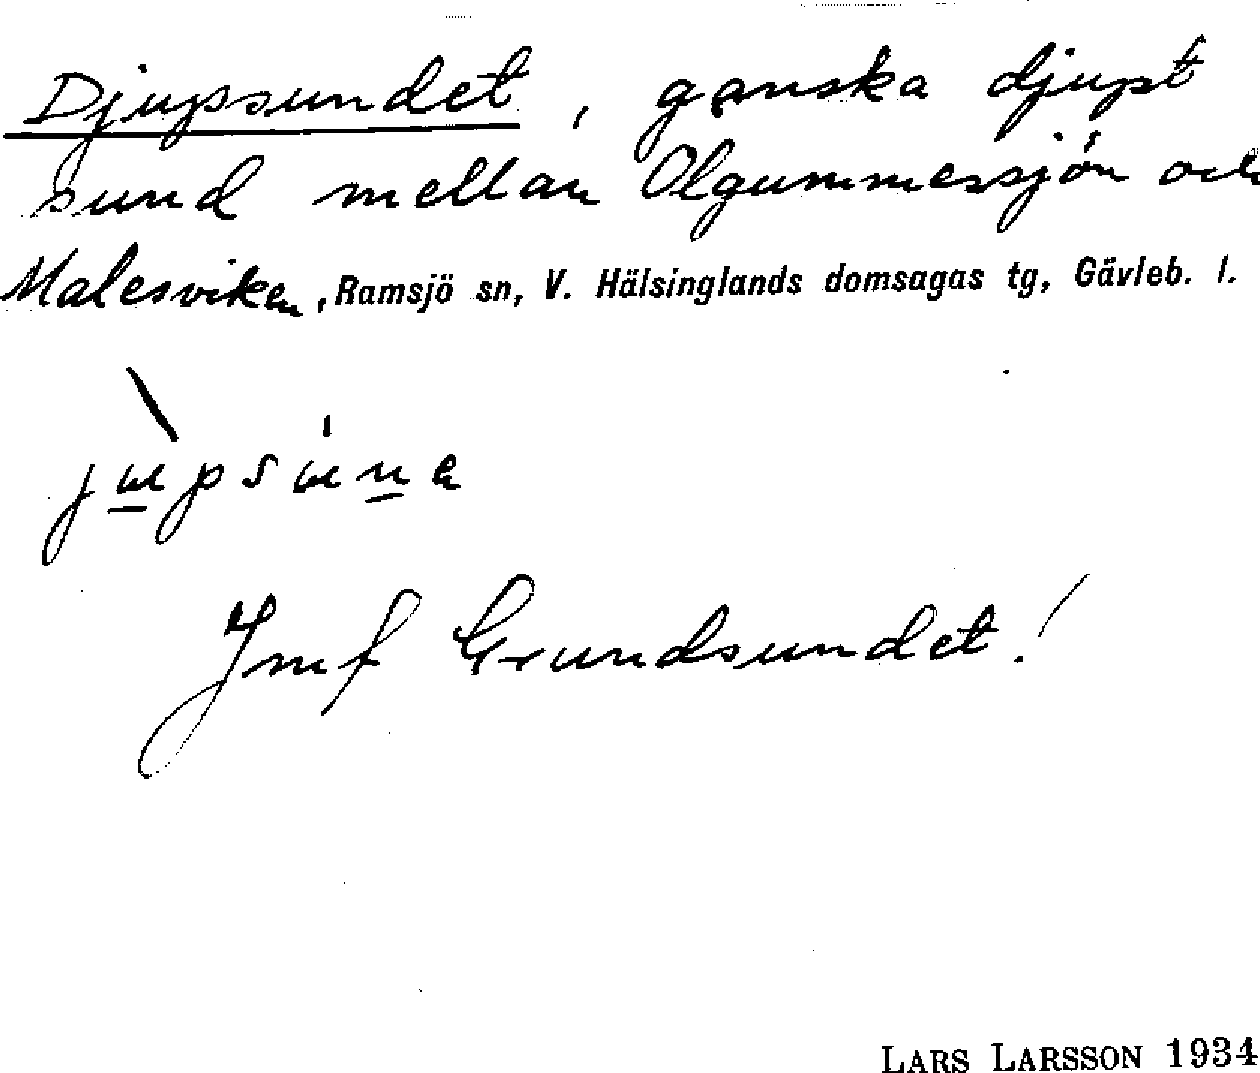 Djupsundet, ganska djupt
sund mellan Olgummessjön och
Malesviken, Ramsjö sn, V. Hälsinglands domsagas tg, Gävleb. l.
Jmf Grundsundet!
LARS LARSSON 1934